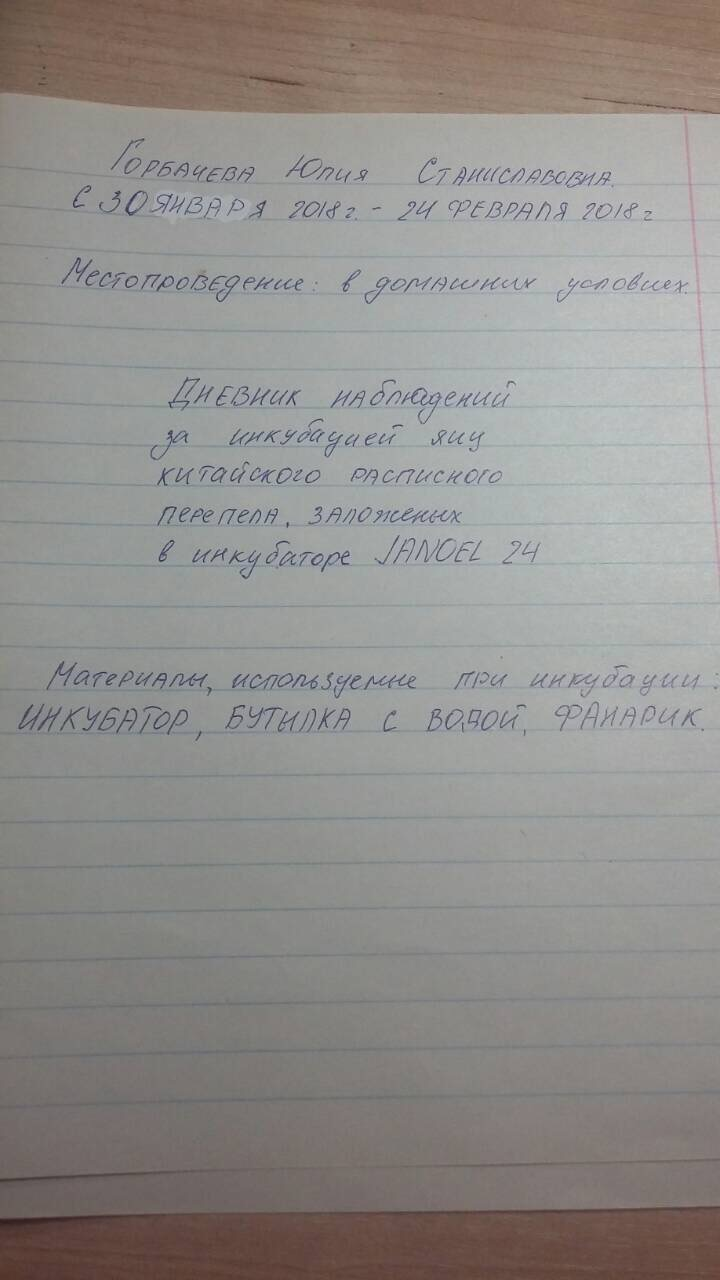 Горбачева Юлия Станиславовна.
С 30 ЯНВАРЯ 2018 г. - 24 ФЕВРАЛЯ 2018 г
Местопроведение: в домашних условиех.
Дневник наблюдений
за инкубацией яиц
китайского расписного
перепела, заложеных
в инкубаторе JANOEL 24
Материалы, используемые при инкубации:
ИНКУБАТОР, БУТЫЛКА С ВОДОЙ, ФАНАРИК.